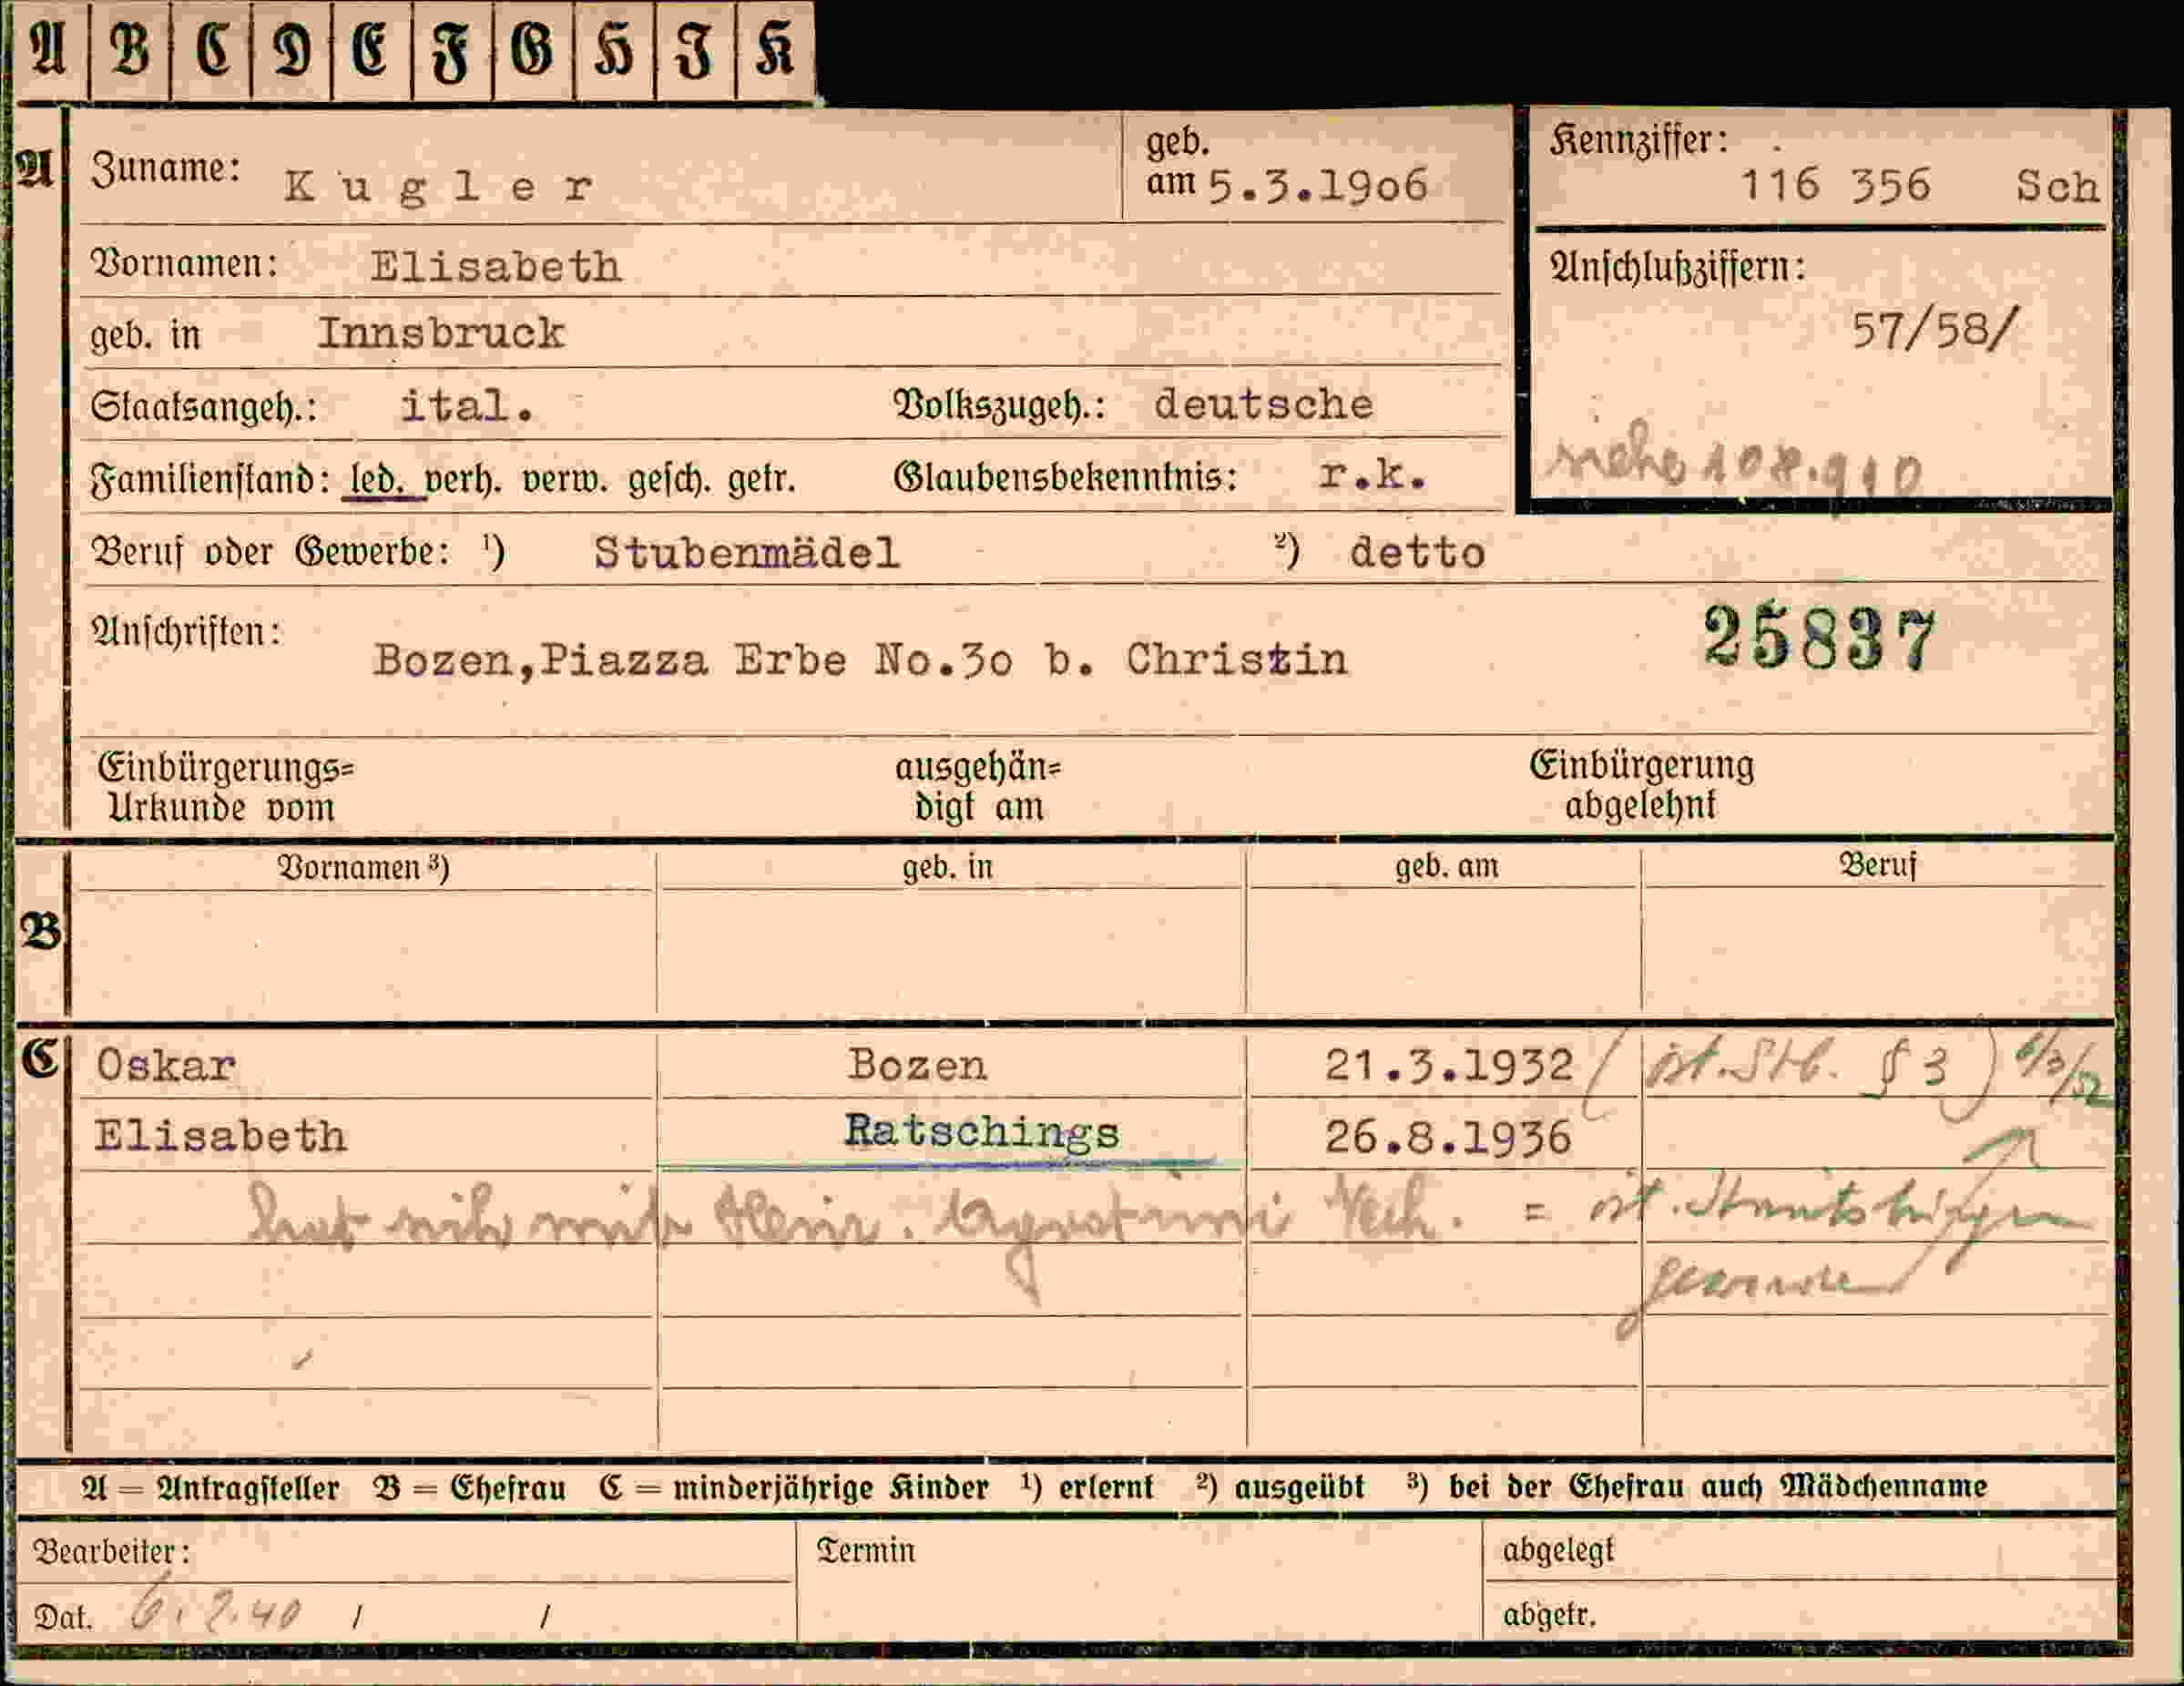 A B C D E F G H I K
A Zuname: Kugler geb. am 5.3.1906
Kennziffer: 116 356 Sch
Vornamen: Elisabeth
Anschlußziffern:
57/58/
geb. in Innsbruck
Staatsangeh.: ital. Volkszugeh.: deutsche
siehe 108.910
Familienstand: led. verh. verw. gesch. getr. Glaubensbekenntnis: r.k.
Beruf oder Gewerbe: ¹) Stubenmädel ²) detto
Anschriften: Bozen,Piazza Erbe No.30 b. Christin
25837
Einbürgerungs=
Urkunde vom
ausgehän=
digt am
Einbürgerung
abgelehnt
B Vornamen ³) geb. in geb. am Beruf
C Oskar Bozen 21.3.1932 (öst. Stb. § 3)
Elisabeth Ratschings 26.8.1936
hat sich mit = öst.
geworden
A = Antragsteller B = Ehefrau C = minderjährige Kinder ¹) erlernt ²) ausgeübt ³) bei der Ehefrau auch Mädchenname
Bearbeiter: Termin abgelegt
Dat. 6.2.40 / / abgetr.